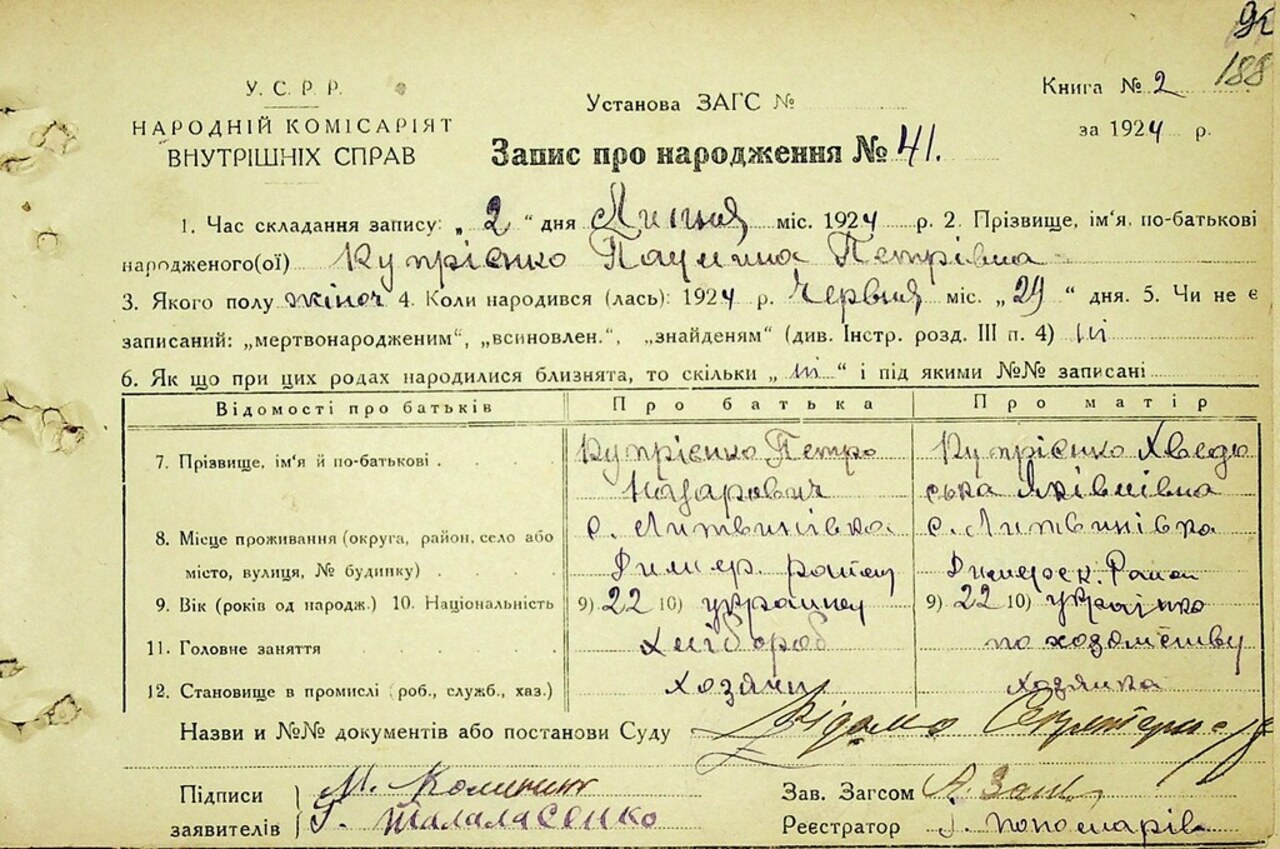 92
188
У. С. Р. Р.
НАРОДНІЙ КОМІСАРІЯТ
ВНУТРІШНІХ СПРАВ
Установа ЗАГС №
Книга № 2
за 1924 р.
Запис про народження № 41.
1. Час складання запису: „ 2 “ дня Липня міс. 1924 р. 2. Прізвище, ім'я, по-батькові
народженого(ої) Купрієнко Паулина Петрівна
3. Якого полу жіноч 4. Коли народився (лась): 1924 р. Червня міс. „ 29 “ дня. 5. Чи не є
записаний: „мертвонародженим“, „всиновлен.“, „знайденям“ (див. Інстр. розд. III п. 4) ні
6. Як що при цих родах народилися близнята, то скільки „ ні “ і під якими №№ записані
Відомості про батьків Про батька Про матір
7. Прізвище, ім'я й по-батькові Купрієнко Петро Купрієнко Хведо
Назарович ська Яківмівна
8. Місце проживання (округа, район, село або с. Литвинівка с. Литвинівка
місто, вулиця, № будинку) Димер. район Димерск. Район
9. Вік (років од народж.) 10. Національність 9) 22 10) украинец 9) 22 10) українка
11. Головне заняття Хлібороб по хозяйству
12. Становище в промислі (роб., служб., хаз.) хозяин хозянка
Назви и №№ документів або постанови Суду Відомо
Підписи М. Зав. Загсом
заявителів Г. Талаласенко Реєстратор Пономарів